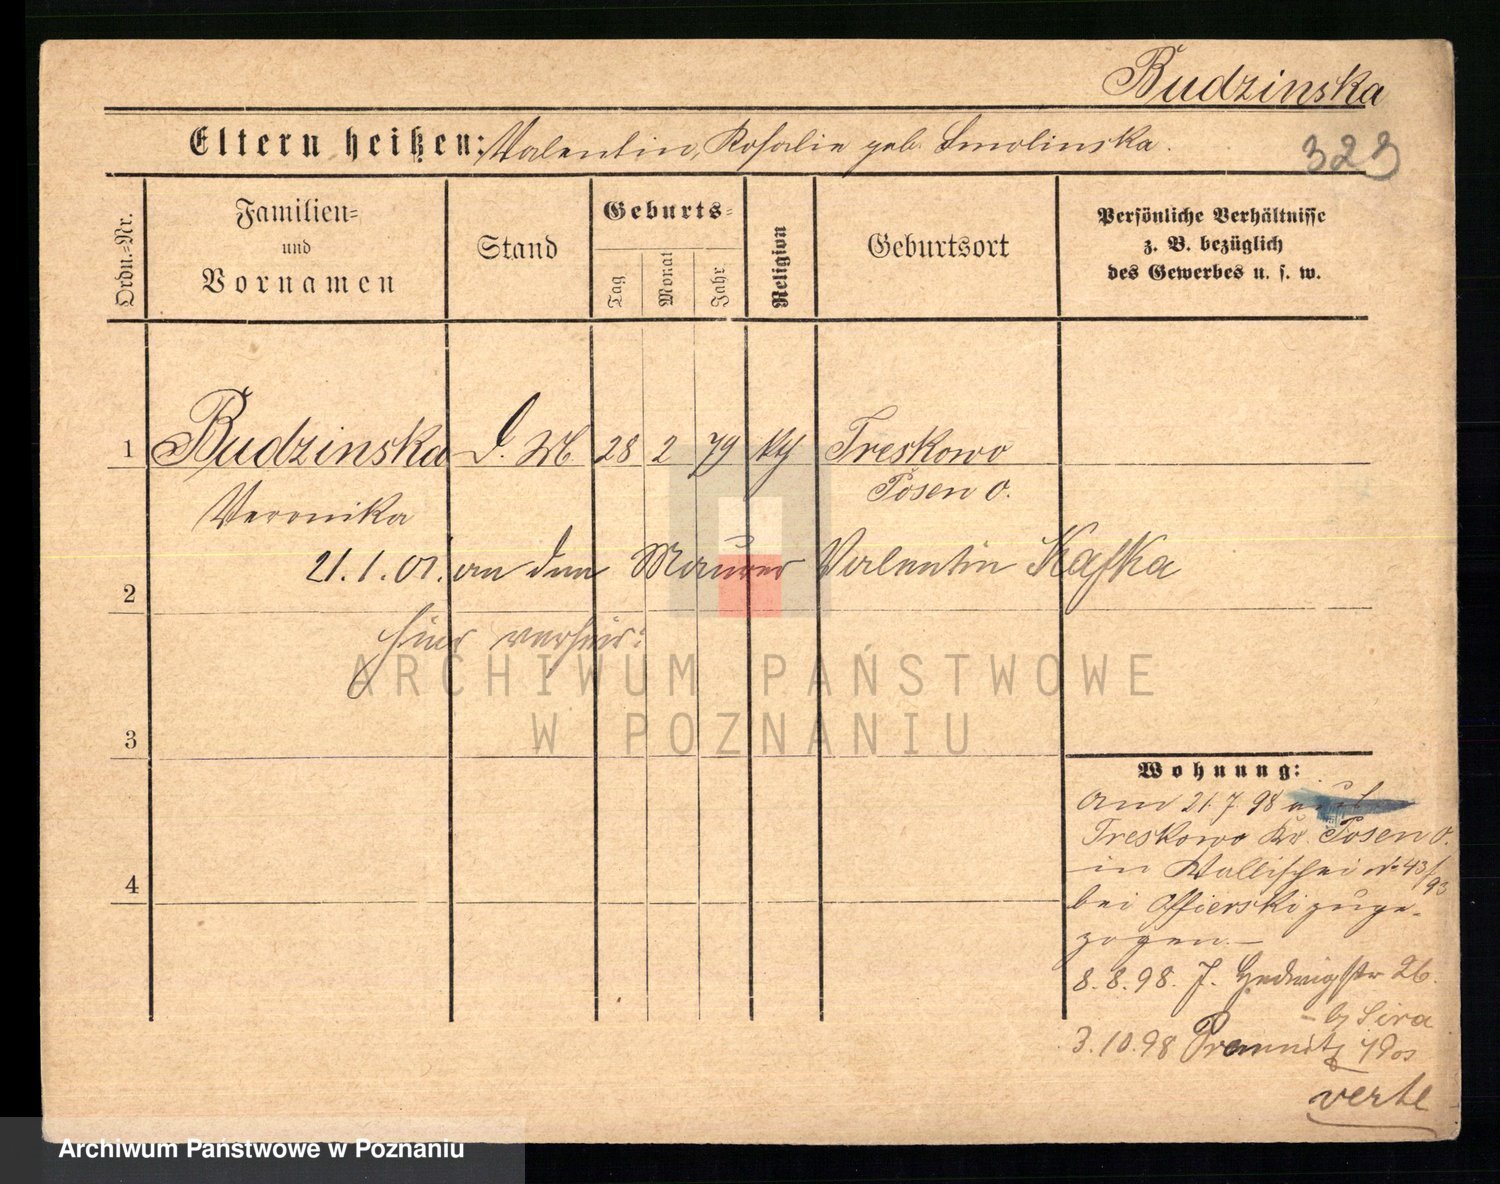 Budzinska
Eltern heißen: Valentin, Rosalie geb. Smolinska.
323
Ordn.-Nr.
Familien-
und
Vornamen
Stand
Geburts-
Tag
Monat
Jahr
Religion
Geburtsort
Persönliche Verhältnisse
z. B. bezüglich
des Gewerbes u. s. w.
1 Budzinska D. M. 28 2 79 kth Treskowo
Posen O.
Veronika
21.1.01. an den Maurer Valentin Kafka
2
hier verheir:
ARCHIWUM PAŃSTWOWE
W POZNANIU
3
Wohnung:
am 21.7.98 aus
Treskowo Kr. Posen O.
in Wallischei No 43/
93
4
bei Offierski zuge-
zogen.—
8.8.98. J. Hedwigstr 26.
- by Sira
3.10.98 Premnitz
verte
Archiwum Państwowe w Poznaniu